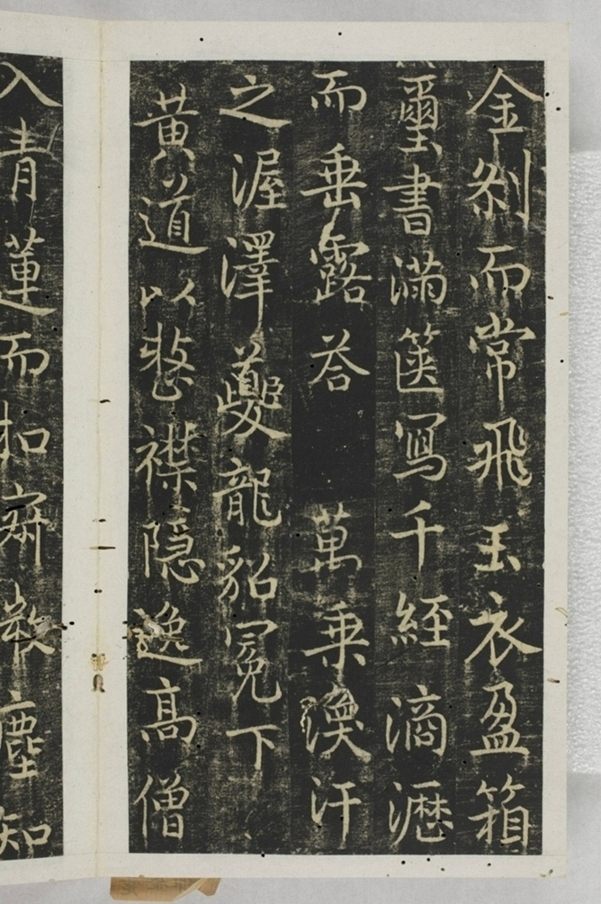 金刹而常飛玉衣盈箱
璽書滿篋寫千經滴瀝
而垂露荅萬乘渙汗
之渥澤夔龍貂冕下
黃道以整襟隱逸高僧
入青蓮而扣寂塵知